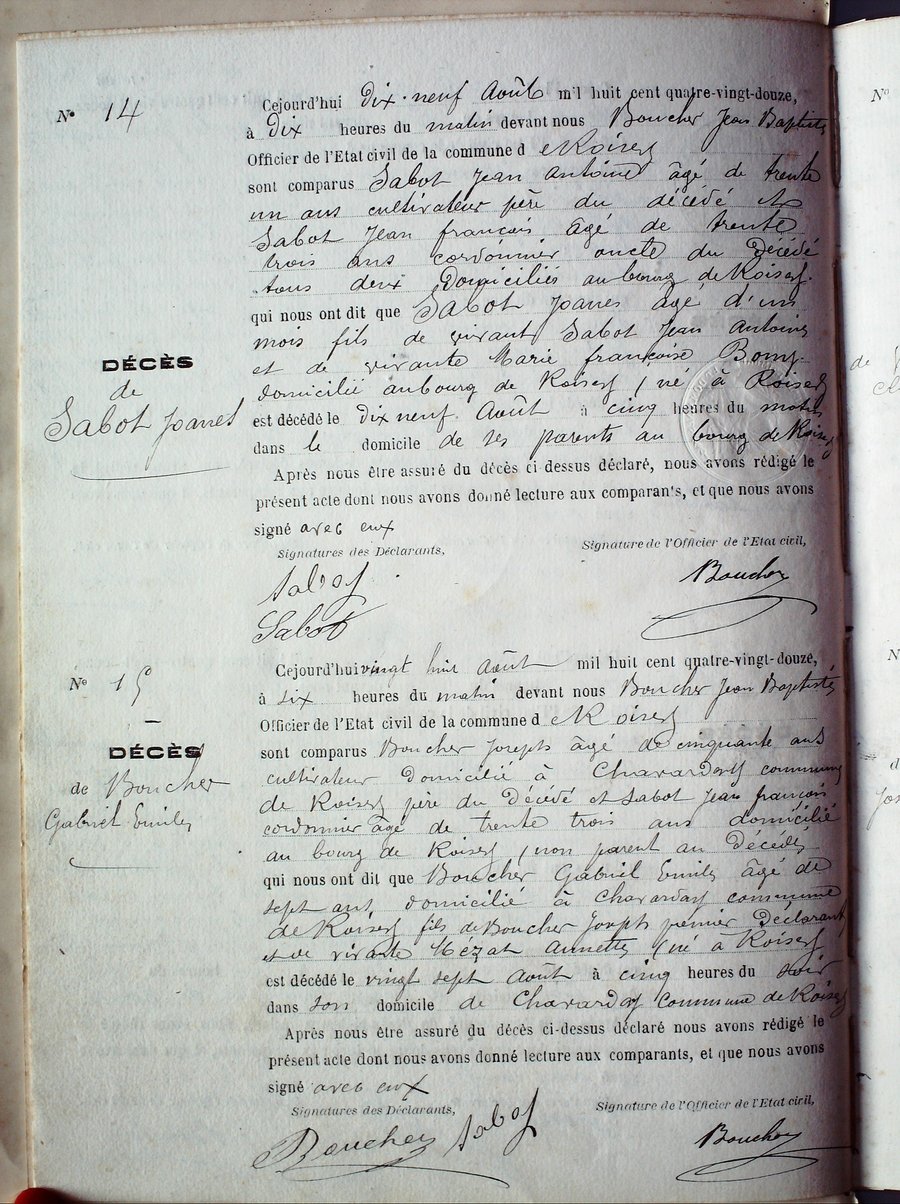 N° 14
Cejourd'hui dix-neuf Août mil huit cent quatre-vingt-douze,
à Dix heures du matin devant nous Boucher Jean Baptiste
Officier de l'Etat civil de la commune d e Roisey
sont comparus Sabot Jean Antoine âgé de trente
un ans cultivateur père du décédé et
Sabot Jean françois âgé de trente
trois ans cordonnier oncle du décédé
tous deux Domiciliés au bourg de Roisey.
qui nous ont dit que Sabot Joanes âgé d'un
mois fils de vivant Sabot Jean Antoine
et de vivante Marie françoise
domicilié au bourg de Roisey (né à Roisey
est décédé le dix neuf Août à cinq heures du matin
dans le domicile de ses parents au bourg de Roisey
DÉCÈS
de
Sabot Joanes
Après nous être assuré du décès ci-dessus déclaré, nous avons rédigé le
présent acte dont nous avons donné lecture aux comparants, et que nous avons
signé avec eux
Signatures des Déclarants,
Signature de l'Officier de l'Etat civil,
Sabot
Sabot
Boucher
N° 15
Cejourd'hui vingt huit Août mil huit cent quatre-vingt-douze,
à six heures du matin devant nous Boucher Jean Baptiste
Officier de l'Etat civil de la commune d e Roisey
sont comparus Boucher Joseph âgé de cinquante ans
cultivateur domicilié à Chavardoy commune
de Roisey père du Décédé et Sabot Jean françois
cordonnier âgé de trente trois ans domicilié
au bourg de Roisey (non parent au Décédé
qui nous ont dit que Boucher Gabriel Emile âgé de
sept ans domicilié à Chavardoy commune
de Roisey fils de Boucher Joseph premier Déclarant
et de vivante Mézat Annette (né à Roisey
est décédé le vingt sept Août à cinq heures du soir
dans son domicile de Chavardoy commune de Roisey
DÉCÈS
de Boucher
Gabriel Emile
Après nous être assuré du décès ci-dessus déclaré nous avons rédigé le
présent acte dont nous avons donné lecture aux comparants, et que nous avons
signé avec eux
Signatures des Déclarants,
Signature de l'Officier de l'Etat civil,
Boucher Sabot
Boucher